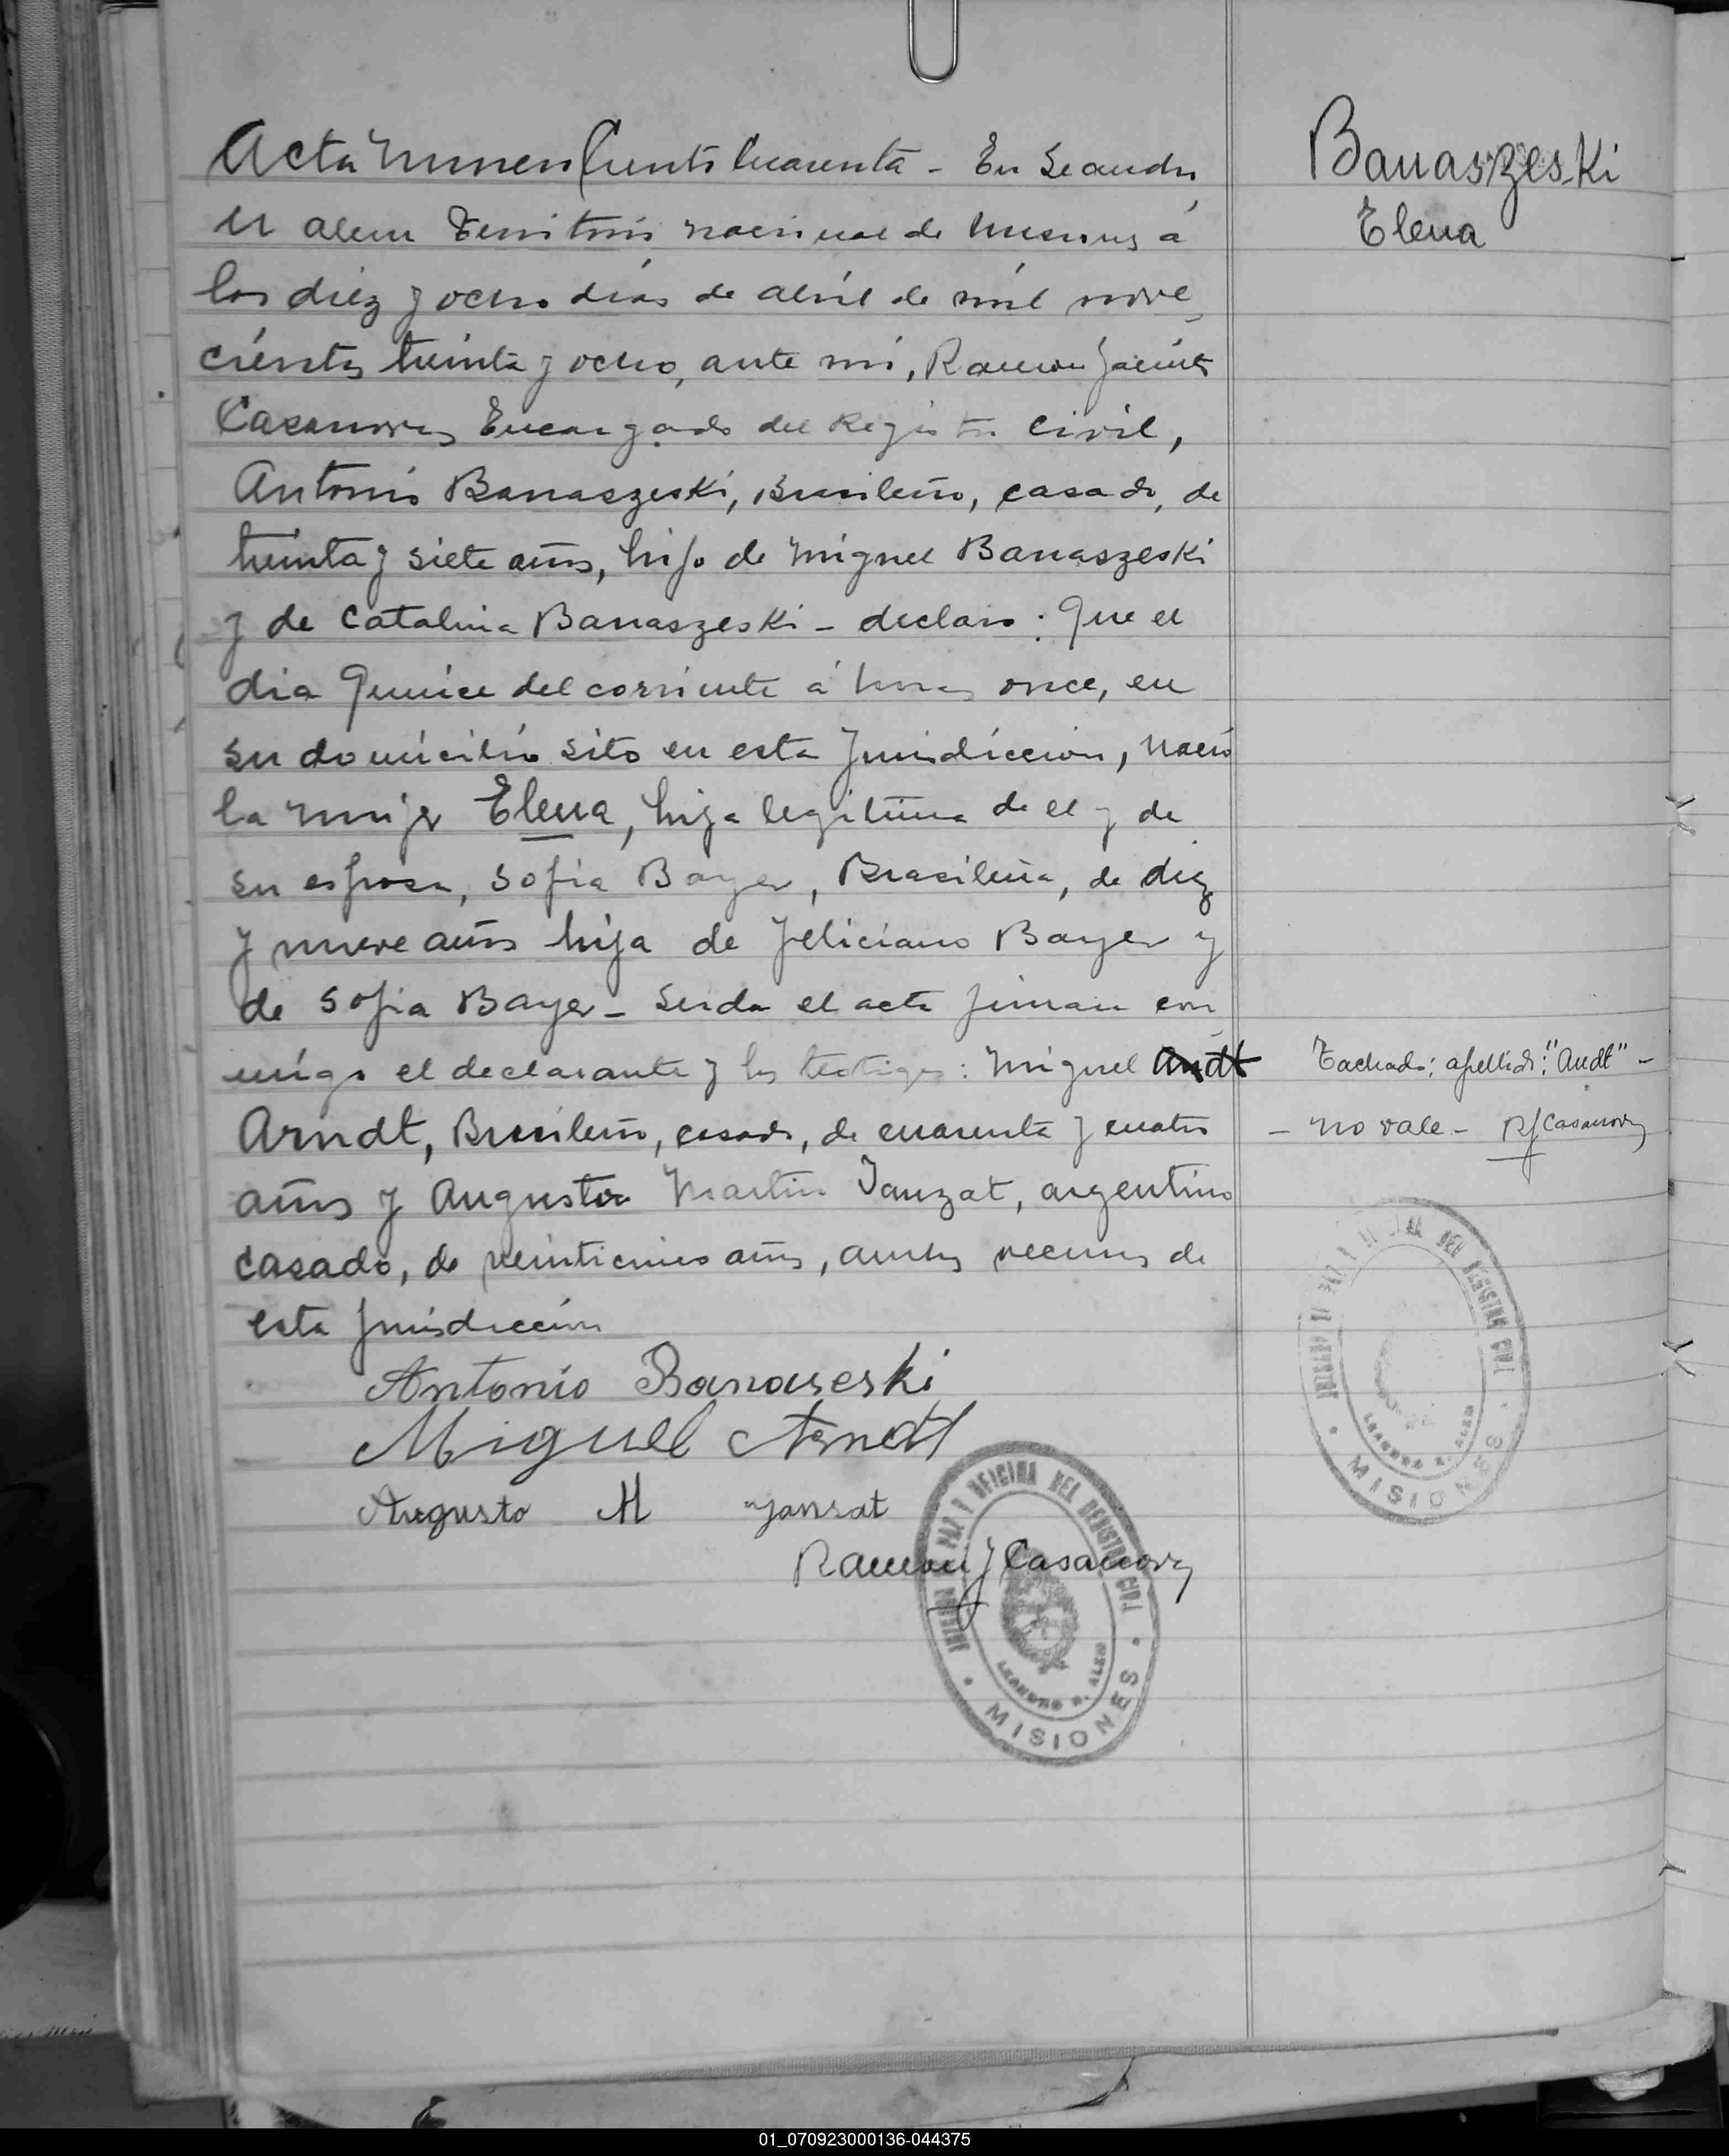 Acta Numero Ciento Cuarenta - En Leandro
N Alem Territorio nacional de Misiones á
los diez y ocho días de abril de mil nove
cientos treinta y ocho, ante mi, Ramon Jacinto
Casanova Encargado del Registro Civil,
Antonio Banaszeski, Brasileño, casado, de
treinta y siete años, hijo de Miguel Banaszeski
y de Catalina Banaszeski - declaro: Que el
dia Quince del corriente á horas once, en
su domicilio sito en esta Jurisdiccion, nació
la mujer Elena, hija legitima de el y de
su esposa, Sofia Bayer, Brasileña, de diez
y nueve años hija de Feliciano Bayer y
de Sofia Bayer - Leida el acta firman con
migo el declarante y los testigos: Miguel Andt
Arndt, Brasileño, casado, de cuarenta y cuatro
años y Augusto Martin Janzat, argentino
casado, de veinticinco años, ambos vecinos de
esta Jurisdiccion
Antonio Banaseski
Miguel Arndt
Augusto M Yansat
Ramon J Casanova
JUZGADO DE PAZ Y OFICINA DEL REGISTRO CIVIL
LEANDRO N. ALEM
MISIONES
Banaszeski
Elena
Tachado: apellido: "Andt" -
- no vale - RJ Casanova
JUZGADO DE PAZ Y OFICINA DEL REGISTRO CIVIL
LEANDRO N. ALEM
MISIONES
01_070923000136-044375